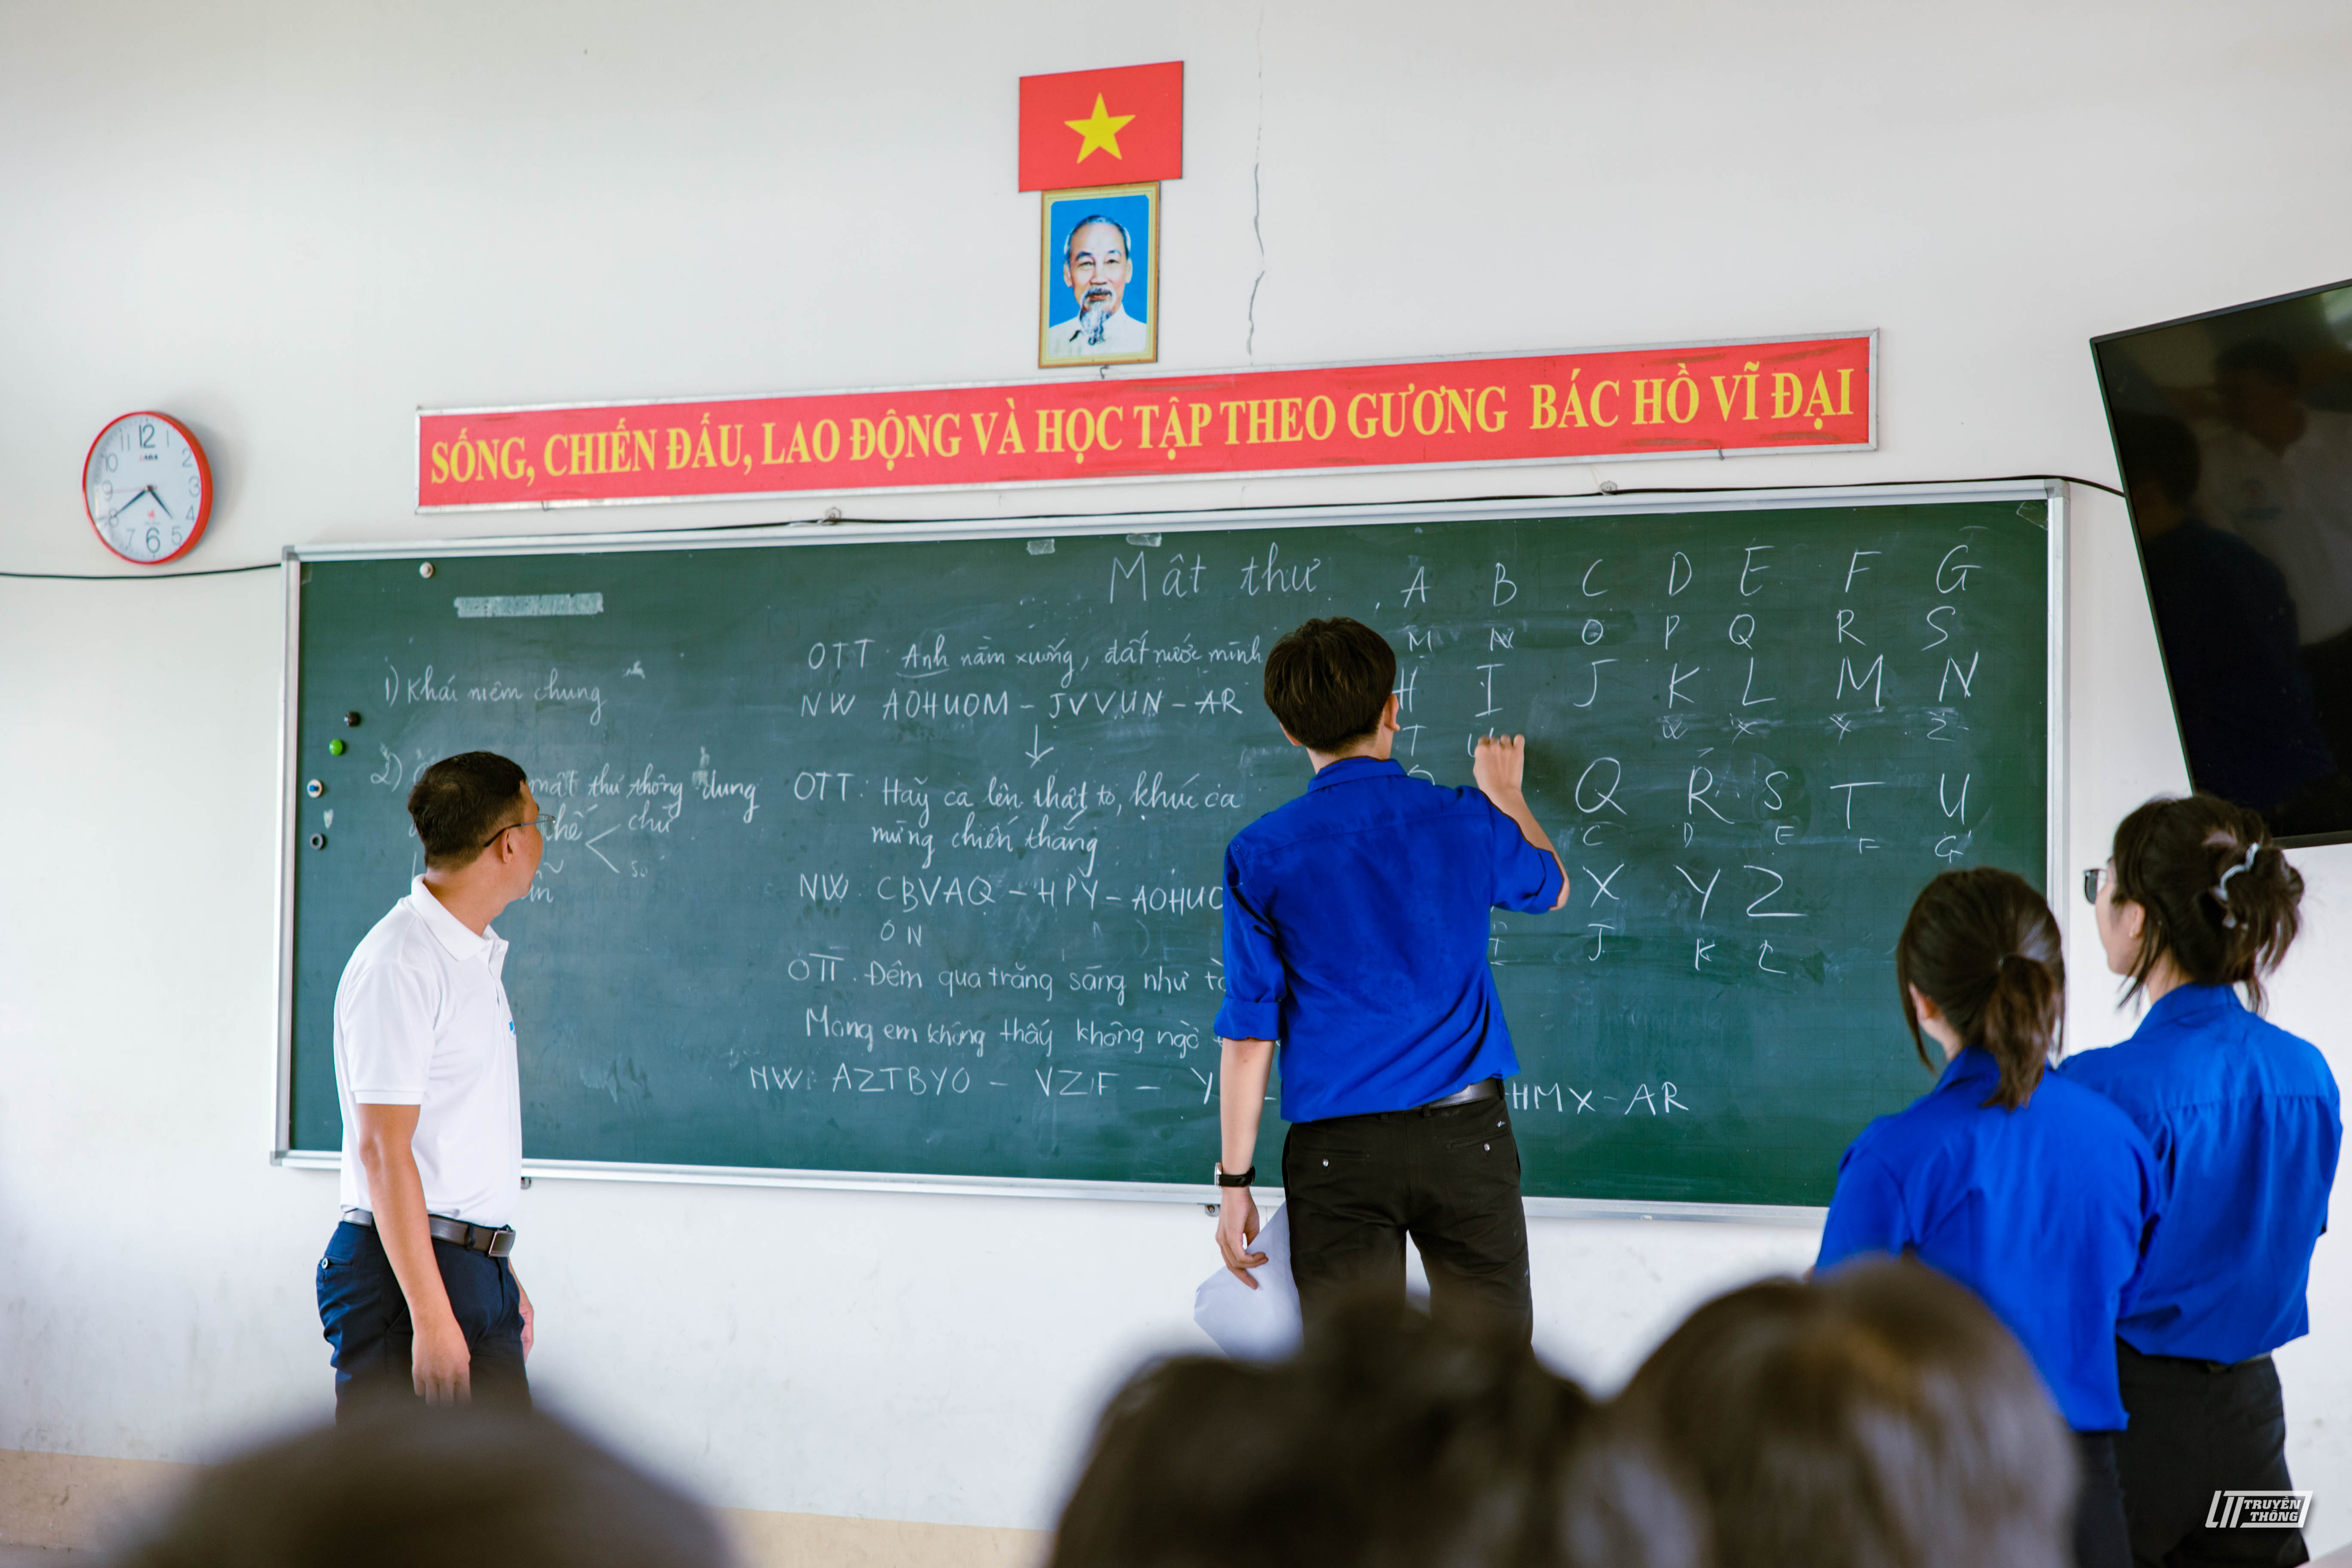 SỐNG, CHIẾN ĐẤU, LAO ĐỘNG VÀ HỌC TẬP THEO GƯƠNG BÁC HỒ VĨ ĐẠI
12
11 1
10 2
9 3
8 4
7 5
6
Mật thư
1) Khái niệm chung
2) mật thư thông dụng
chữ
số
OTT: Anh nằm xuống, đất nước mình
NW AOHUOM - JVVUN - AR
OTT: Hãy ca lên thật to, khúc ca
mừng chiến thắng
NW: CBVAQ - HPY - AOHUO
O N
OTT: Đêm qua trăng sáng như
Mong em không thấy không ngờ
NW: AZTBYO - VZIF - Y HMX - AR
A B C D E F G
M N O P Q R S
H I J K L M N
T W X Y Z
Q R S T U
C D E F G
X Y Z
I J K L
TRUYỀN
THÔNG